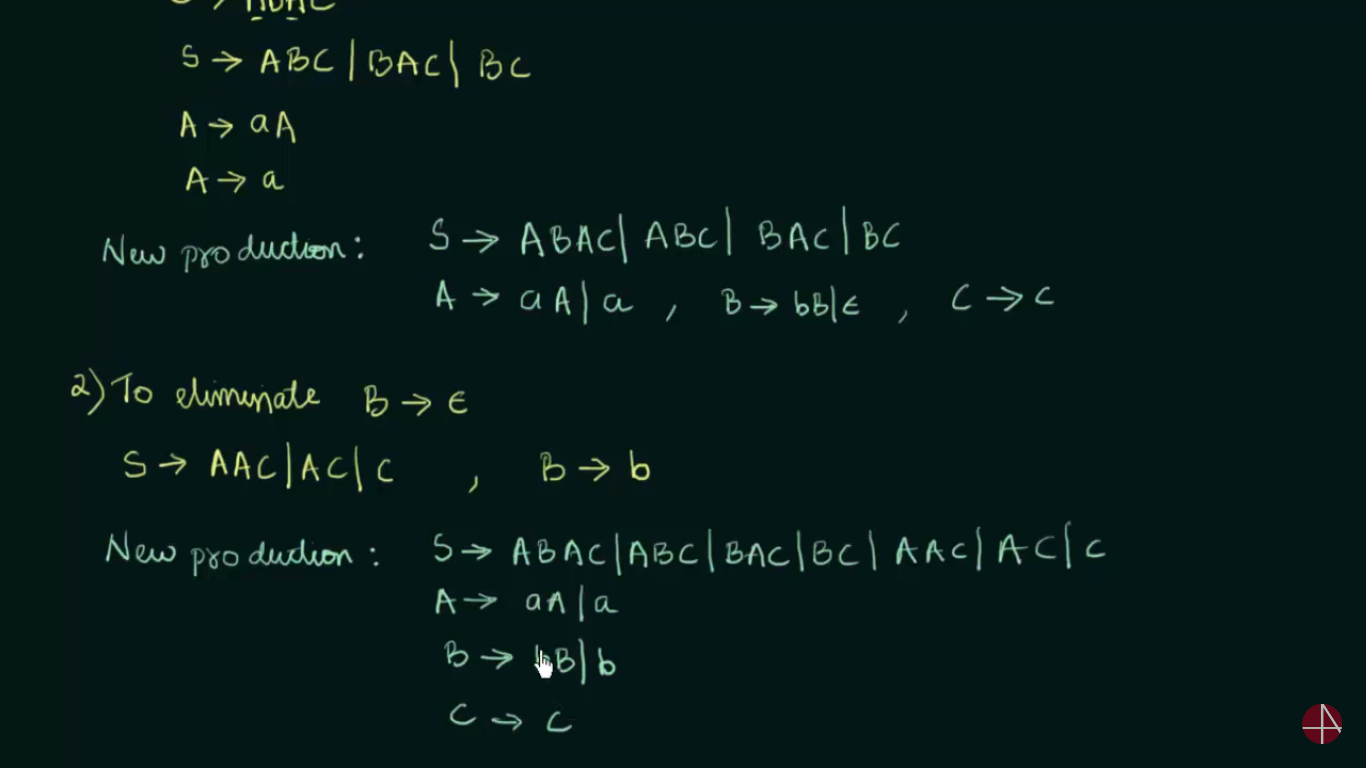 S → ABC | BAC | BC
A → aA
A → a
New production: S → ABAC | ABC | BAC | BC
A → aA | a , B → bB | ϵ , C → c
2) To eliminate B → ϵ
S → AAC | AC | C , B → b
New production: S → ABAC | ABC | BAC | BC | AAC | AC | C
A → aA | a
B → bB | b
C → c